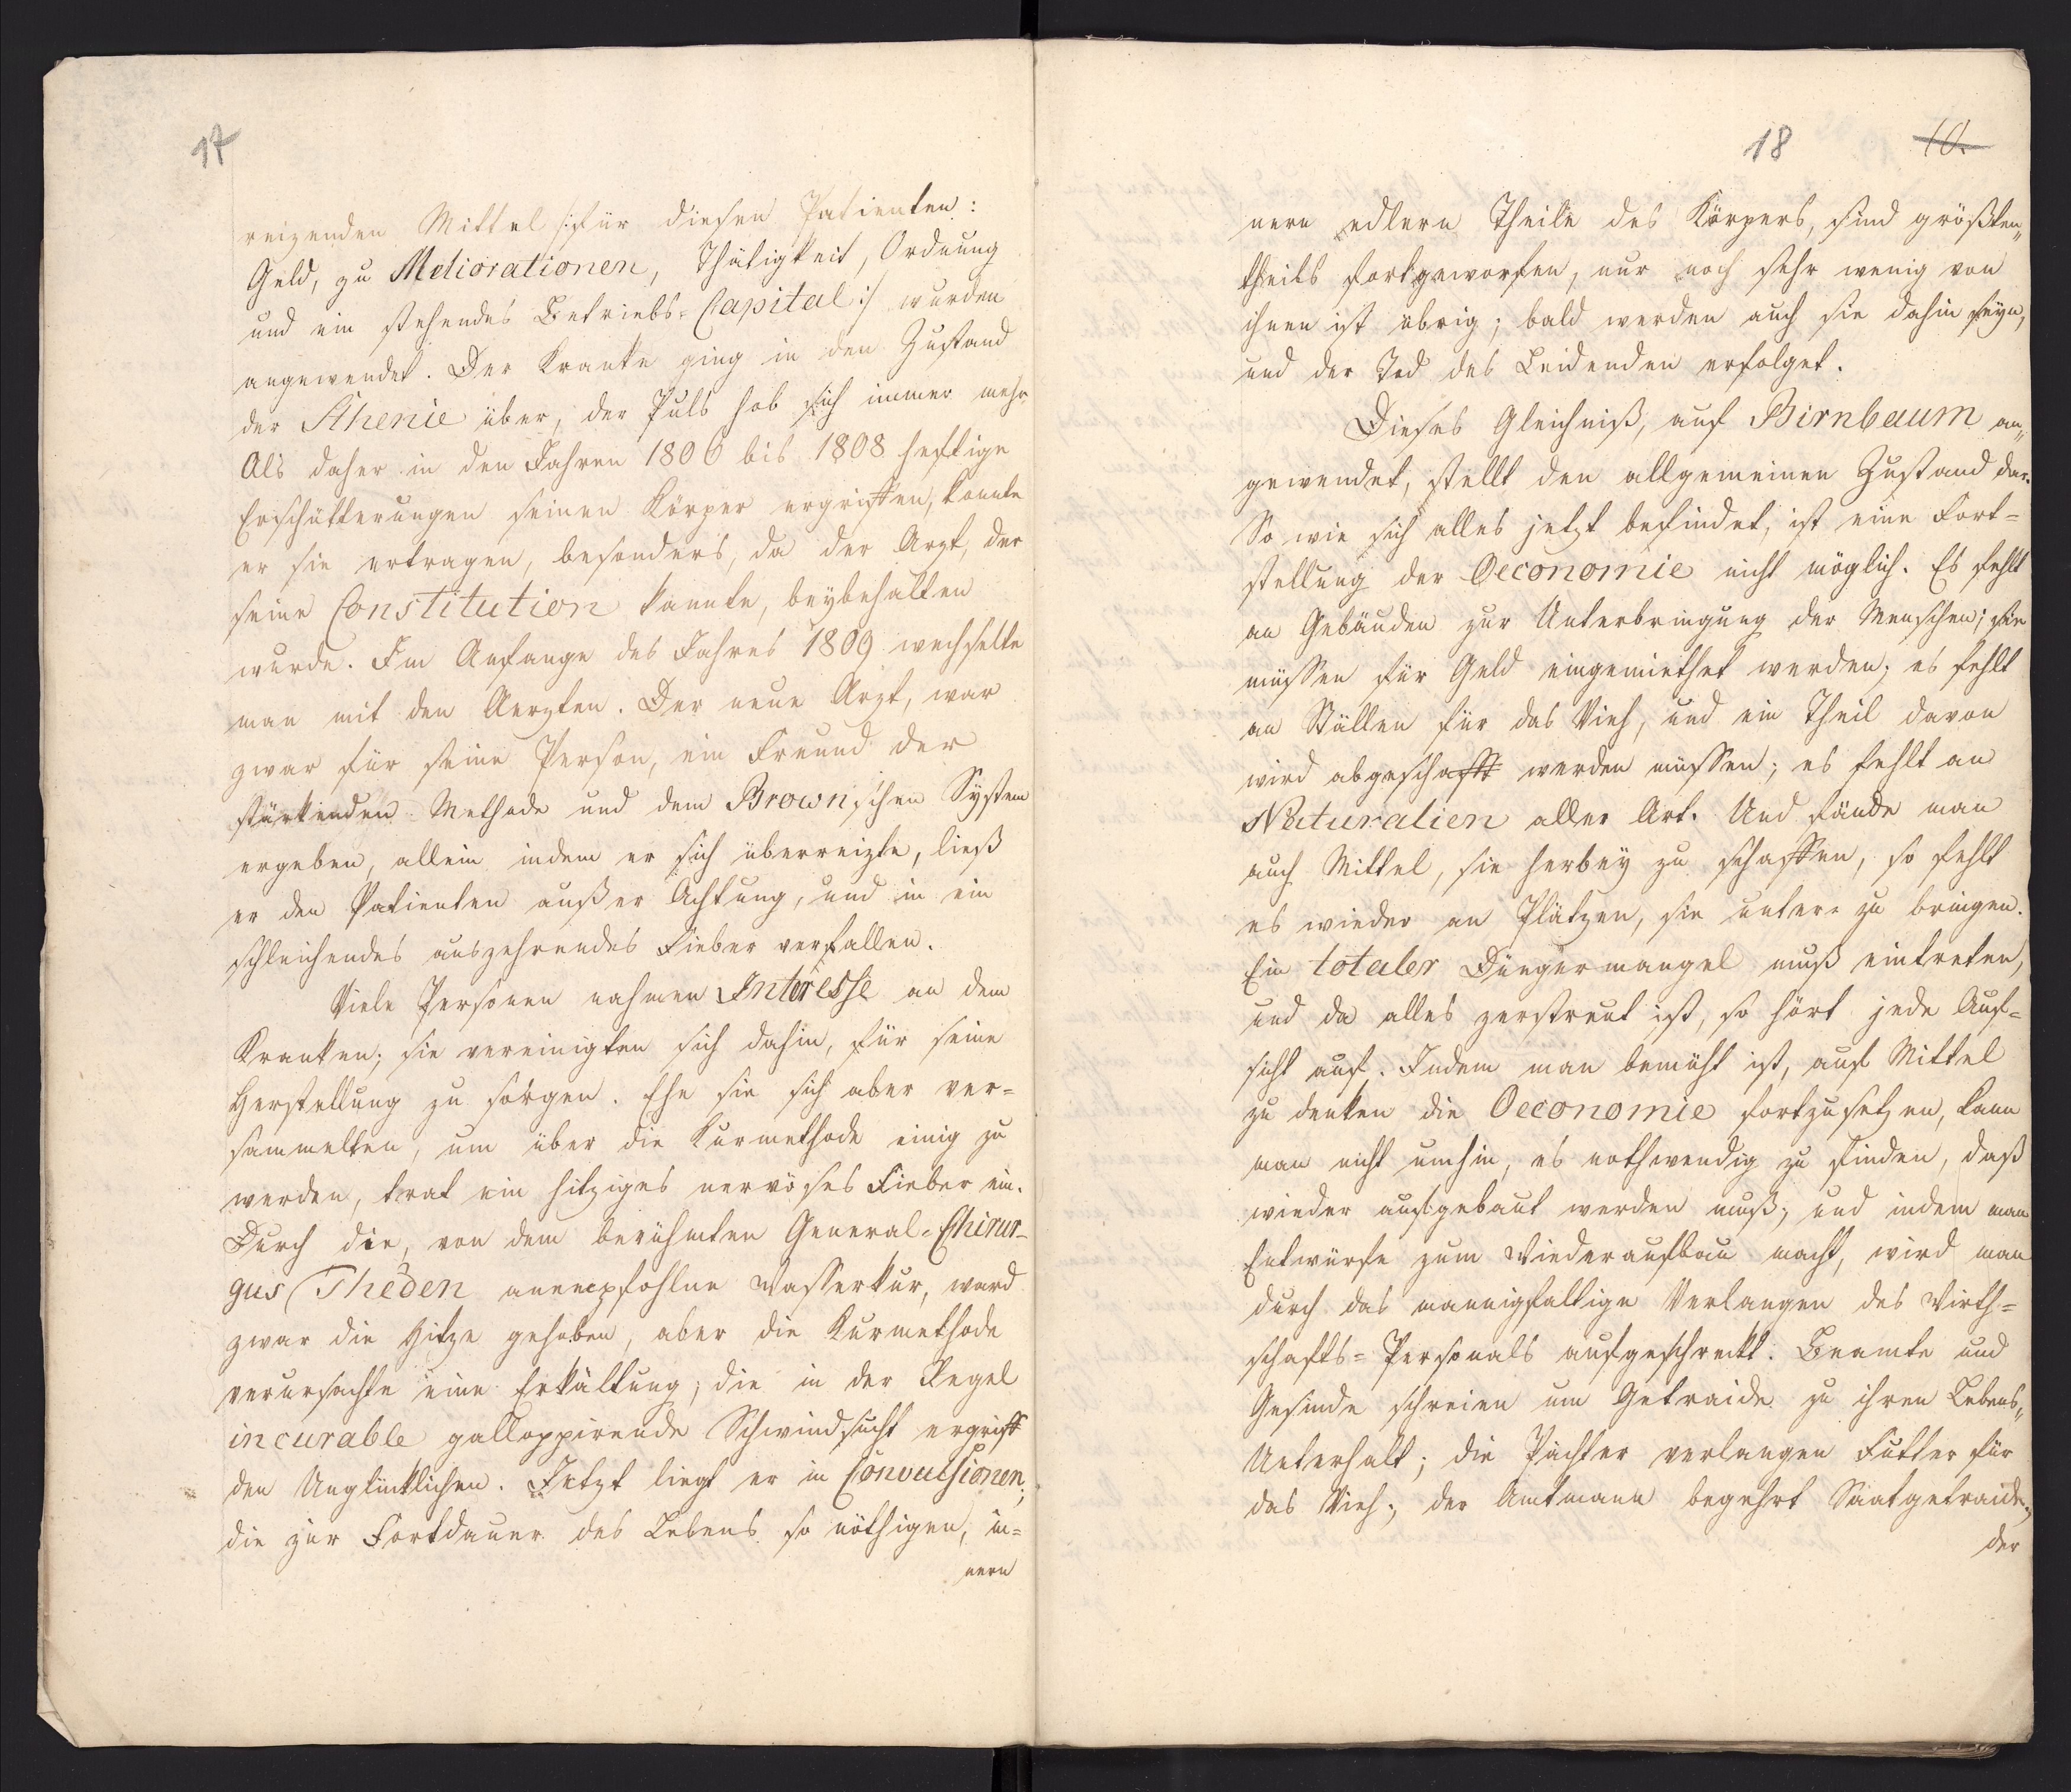 17
reizenden Mittel /: für diesen Patienten:
Geld, zu Meliorationen, Thätigkeit, Ordnung
und ein stehendes Betriebs-Capital :/ wurden
angewendet. Der Kranke ging in den Zustand
der Sthenie über, der Puls hob sich immer mehr.
Als daher in den Jahren 1806 bis 1808 heftige
Erschütterungen seinen Körper ergriffen, konnte
er sie ertragen, besonders, da der Arzt, der
seine Constitution kannte, beybehalten
wurde. Im Anfange des Jahres 1809 wechselte
man mit den Aerzten. Der neue Arzt, war
zwar für seine Person, ein Freund der
stärkenden Methode und dem Brownschen System
ergeben, allein indem er sich überreizte, ließ
er den Patienten außer Achtung, und in ein
schleichendes auszehrendes Fieber verfallen.
Viele Personen nahmen Interesse an dem
Kranken; sie vereinigten sich dahin, für seine
Herstellung zu sorgen. Ehe sie sich aber ver=
sammelten, um über die Kurmethode einig zu
werden, trat ein hitziges nervöses Fieber ein.
Durch die, von dem berühmten General-Chirur=
gus Theden anempfohlne Wasserkur, ward
zwar die Hitze gehoben, aber die Kurmethode
verursachte eine Erkältung; die in der Regel
incurable galloppirende Schwindsucht ergriff
den Unglücklichen. Jetzt liegt er in Convulsionen;
die zur Fortdauer des Lebens so nöthigen, in=
nern
18 10.
nern edlern Theile des Körpers, sind größten„
theils fortgeworfen, nur noch sehr wenig von
ihnen ist übrig; bald werden auch sie dahin seyn,
und der Tod des Leidenden erfolget.
Dieses Gleichniß, auf Birnbaum an„
gewendet, stellt den allgemeinen Zustand dar.
So wie sich alles jetzt befindet, ist eine Fort=
stellung der Oeconomie nicht möglich. Es fehlt
an Gebäuden zur Unterbringung der Menschen; sie
müssen für Geld eingemiethet werden; es fehlt
an Ställen für das Vieh, und ein Theil davon
wird abgeschafft werden müssen; es fehlt an
Naturalien aller Art. Und fände man
auch Mittel, sie herbey zu schaffen, so fehlt
es wieder an Plätzen, sie unter zu bringen.
Ein totaler Düngermangel muß eintreten,
und da alles zerstreut ist, so hört jede Auf=
sicht auf. Indem man bemüht ist, auf Mittel
zu denken die Oeconomie fortzusetzen, kann
man nicht umhin, es nothwendig zu finden, daß
wieder aufgebaut werden muß; und indem man
Entwürfe zum Wiederaufbau macht, wird man
durch das mannigfaltige Verlangen des Wirth=
schafts=Personals aufgeschreckt. Beamte und
Gesinde schreien um Getraide zu ihren Lebens„
Unterhalt; die Pächter verlangen Futter für
das Vieh; der Amtmann begehrt Saatgetraide;
der